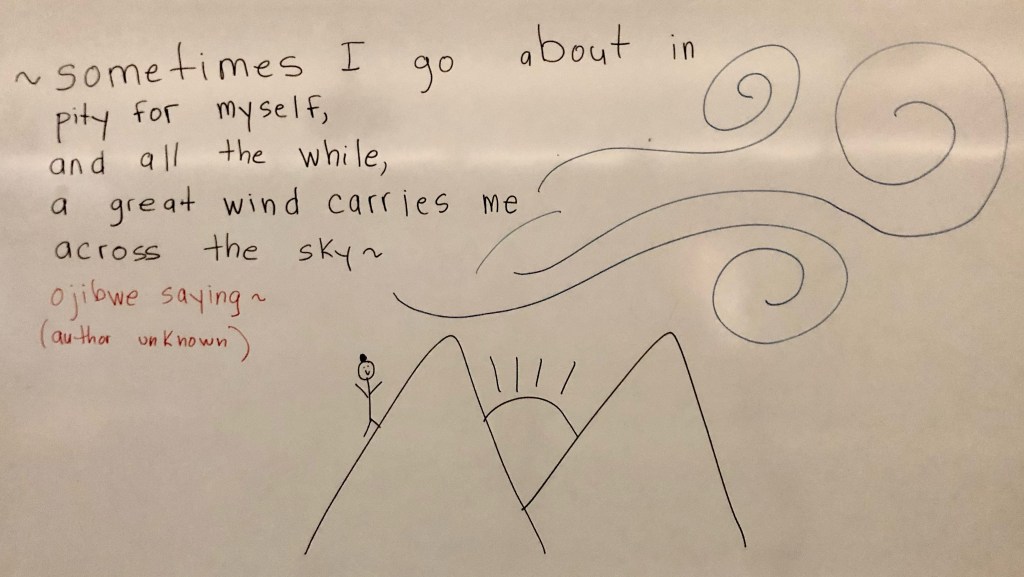 ~ sometimes I go about in
pity for myself,
and all the while,
a great wind carries me
across the sky ~
ojibwe saying ~
(author unknown)